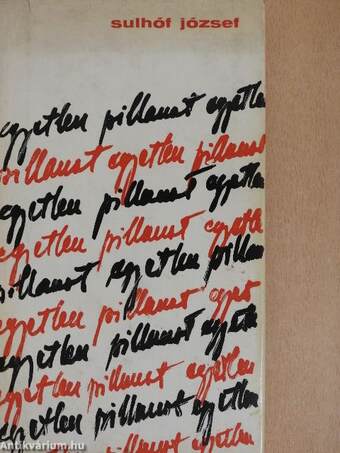 sulhóf józsef
egyetlen pillanat egyetlen
pillanat egyetlen pillanat
egyetlen pillanat egyetlen
egyetlen pillanat egyetle
pillanat egyetlen pillan
egyetlen pillanat egyet
egyetlen pillanat egyetle
egyetlen pillanat egyetlen
egyetlen pillanat egyetlen
pillanat egyetlen
Antikvárium.hu